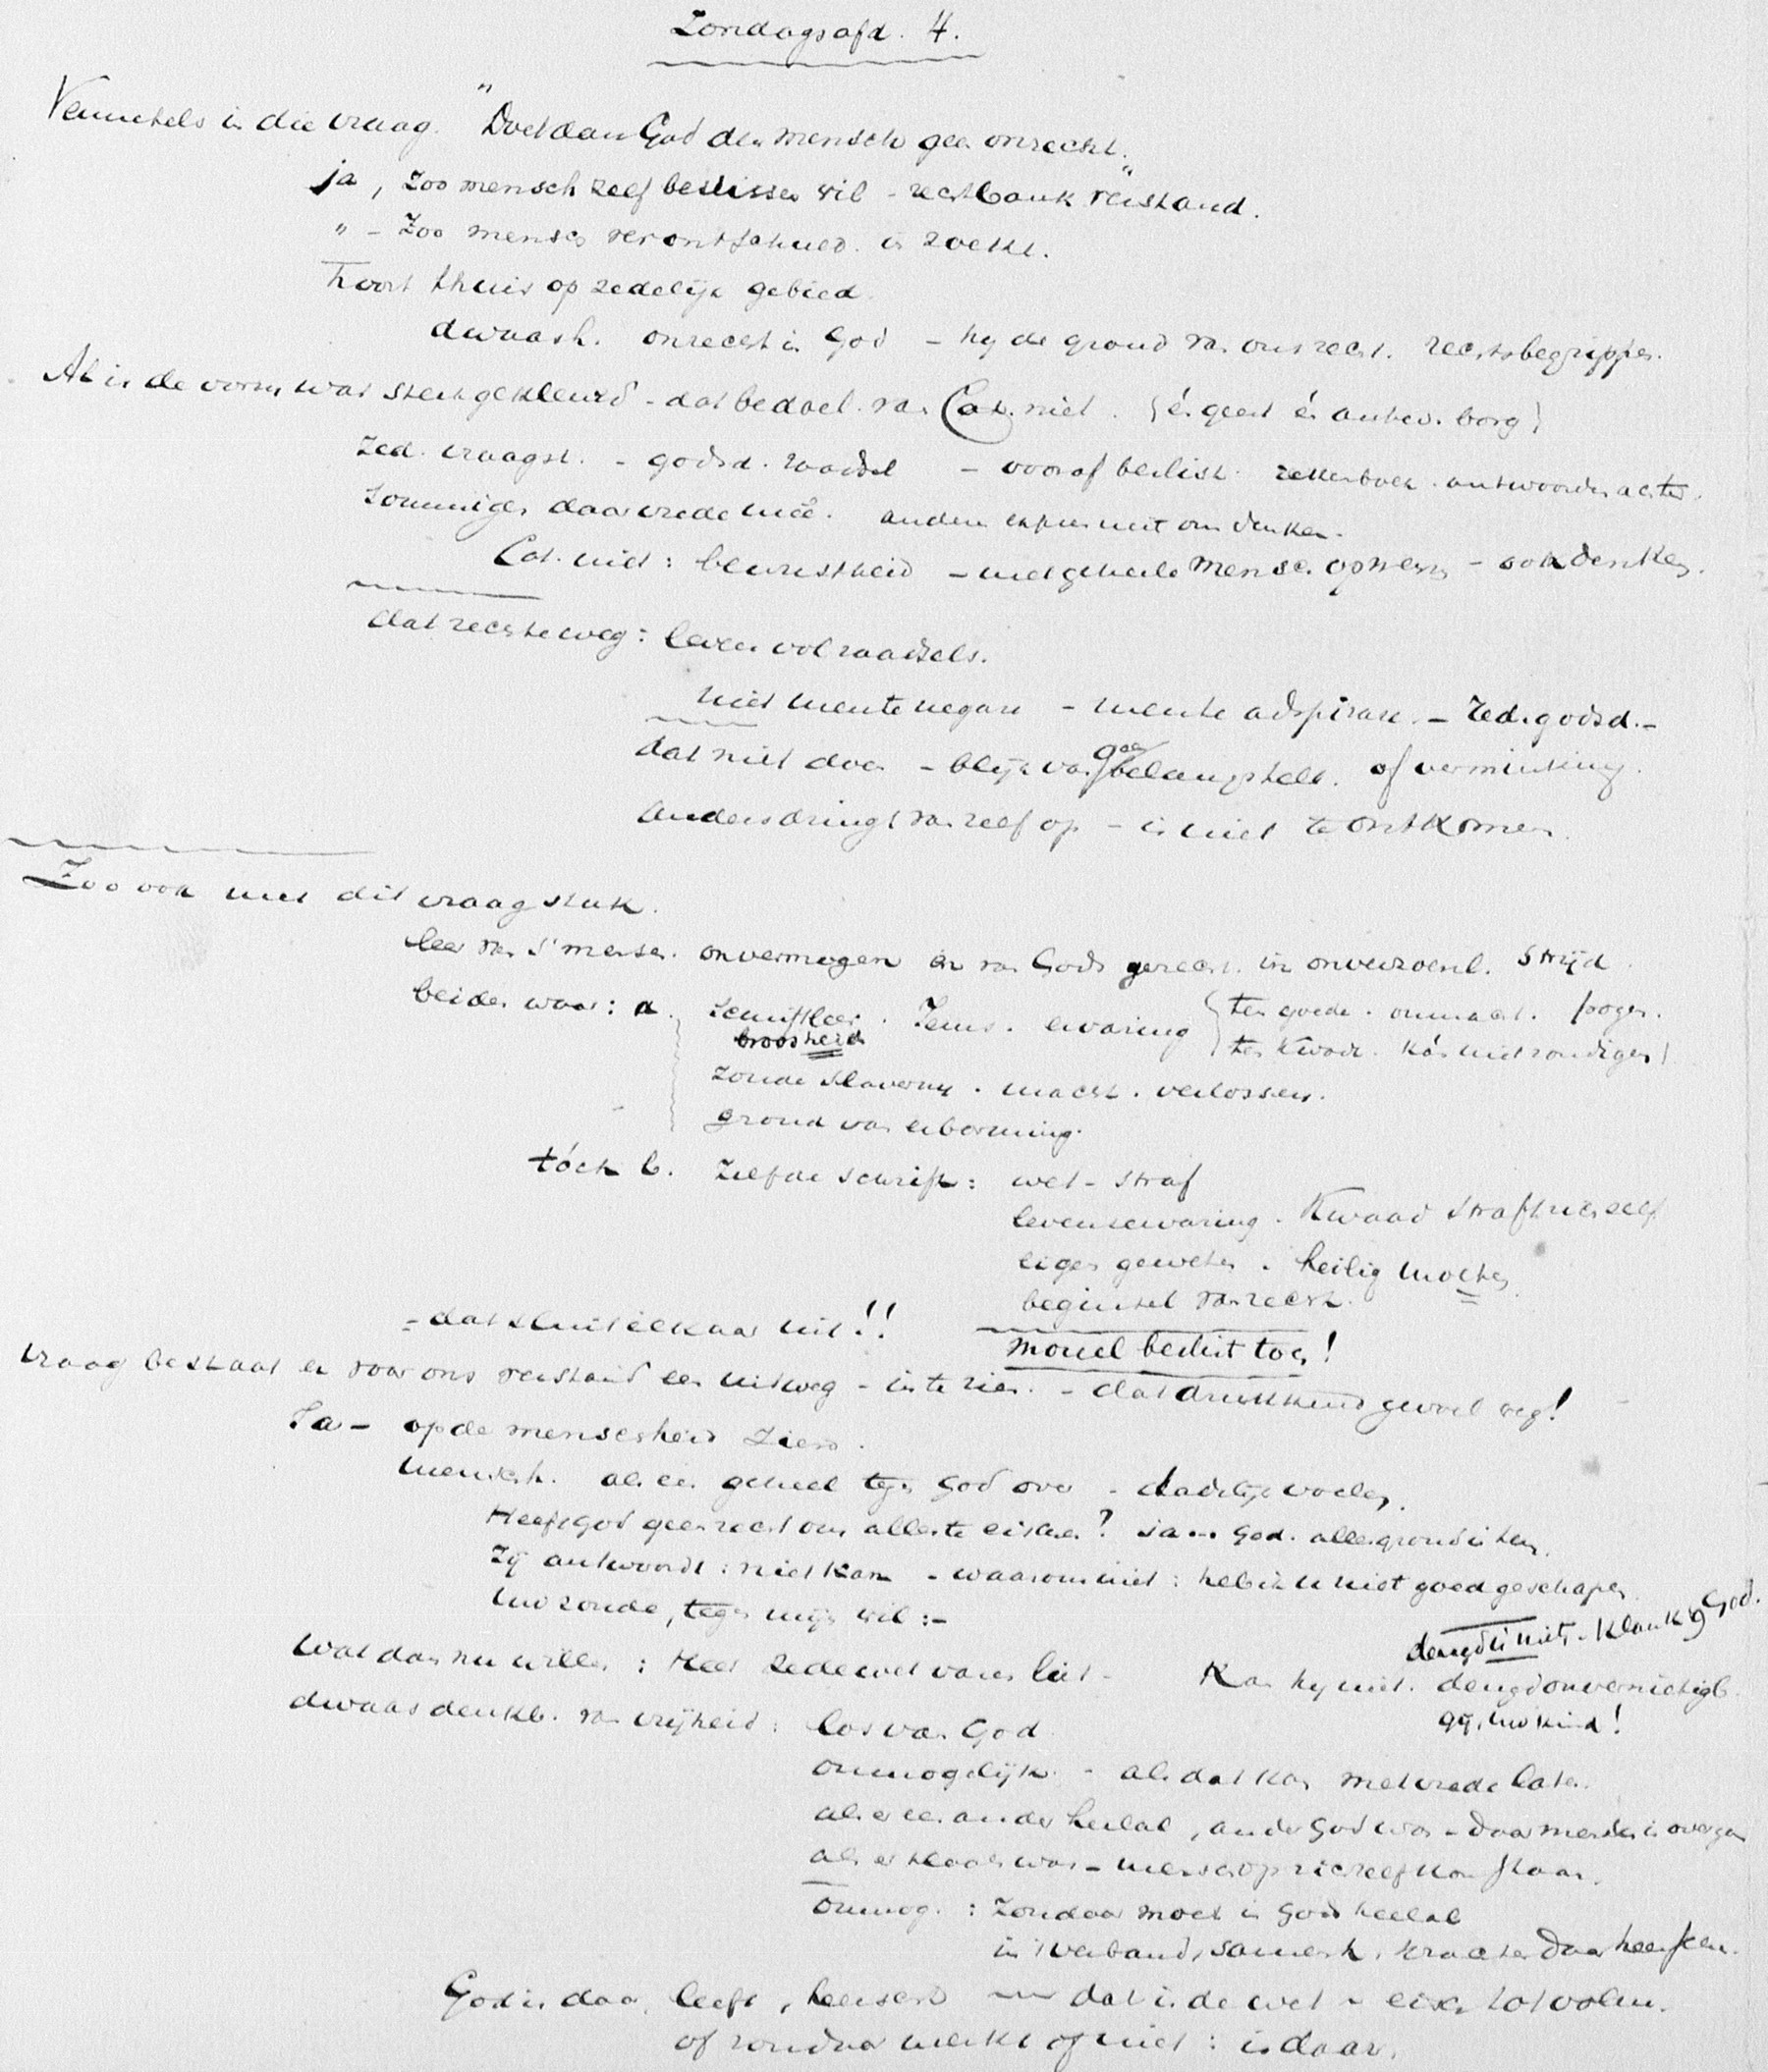 Zondagsafd. 4.
Vermetels in die vraag. "Doet dan God den mensch geen onrecht."
ja, zoo mensch zelf beslissen wil - rechtbank verstand.
" - Zoo mensch verontschuld. in zoekt.
hoort thuis op zedelijk gebied.
dwaash. onrecht in God - hy de grond van ons recht. rechtsbegrippen.
Al is de vorm wat sterk gekleurd - dat bedoel. van Cat. niet. (én geest én antw. borg)
zed. vraagst. - godsd. raadsel - vooraf beslist. rekenboek. antwoorden achter.
Sommigen daar vrede meê. anderen om denken.
Cat. niet: bewustheid - met geheele mensch - ook denken.
dat rechte weg: leven vol raadsels.
niet mente negare - mente adspirare. - Zed. godsd. -
dat niet doen - blijk van geen belangstell. of verminking.
anders dringt van zelf op - is niet te ontkomen.
Zoo ook met dit vraagstuk.
leer van 's mensch. onvermogen en van Gods gerecht. in onverzoenl. strijd.
beiden waar: a. Schriftleer. Jezus. ervaring (ten goede. onmacht. pogen.
broosheid ten kwade. kán niet zondigen)
zonde slaverny. macht. verlossen.
grond van erbarming.
tóch b. Zelfde schrift: wet - straf
levenservaring. Kwaad straft zich zelf
eigen geweten. heilig moeten.
beginsel van recht.
- dat sluit elkaar uit!! moreel besluit toch!
Vraag bestaat er voor ons verstand een uitweg - in te zien. - dat drukkend gevoel weg!
Ja - op de menschheid ziend.
mensch. als een geheel tegen God over - dadelijk voelen.
Heeft God geen recht om alles te eischen? ja... God. alles grond in hem.
Zij antwoordt: niet kan - waarom niet: heb ik u niet goed geschapen
uw zonde, tegen mijn wil: -
deugd is niets. klank God.
Wat dan nu willen: Heer zedewet varen laat - Kan hy niet. deugd onvernietigb.
gij, uw kind!
dwaas denkb. van vrijheid: los van God
onmogelijk - als dat kon met vrede laten.
als er een ander heelal, ander God was - daar mensch in overgaan
als er was - mensch op zich zelf kon staan.
onmog.: Zondaar moet in Gods heelal
in 't verband, samenh. krachten daar heerschen.
God is daar, leeft, heerscht - dat is de wet - eisch tot volm.
of zondaar merkt of niet: is daar.